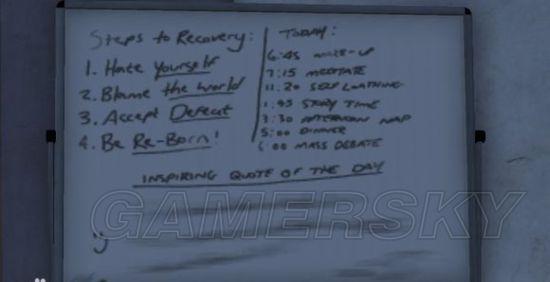 Steps to Recovery:
1. Hate Yourself
2. Blame the World
3. Accept Defeat
4. Be Re-Born!
TODAY:
6:45 WAKE-UP
7:15 MEDITATE
11.20 SELF LOATHING
1:45 STORY TIME
3:30 AFTERNOON NAP
5:00 DINNER
6:00 MASS DEBATE
INSPIRING QUOTE OF THE DAY
GAMERSKY